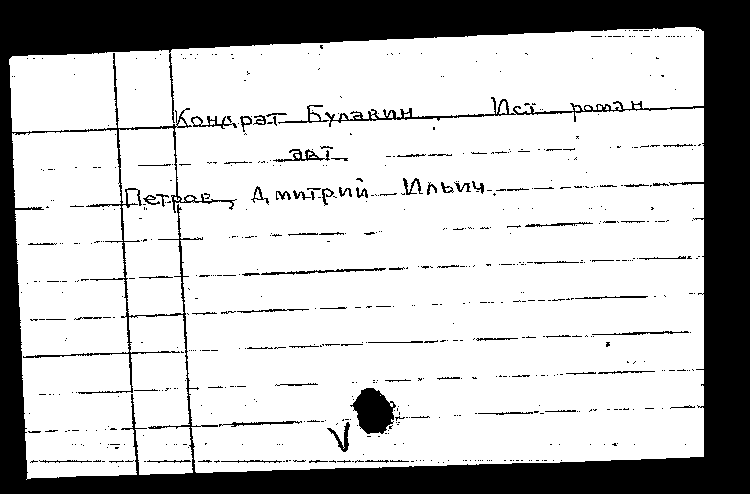 Кондрат Булавин. Ист. роман
авт.
Петров, Дмитрий Ильич.